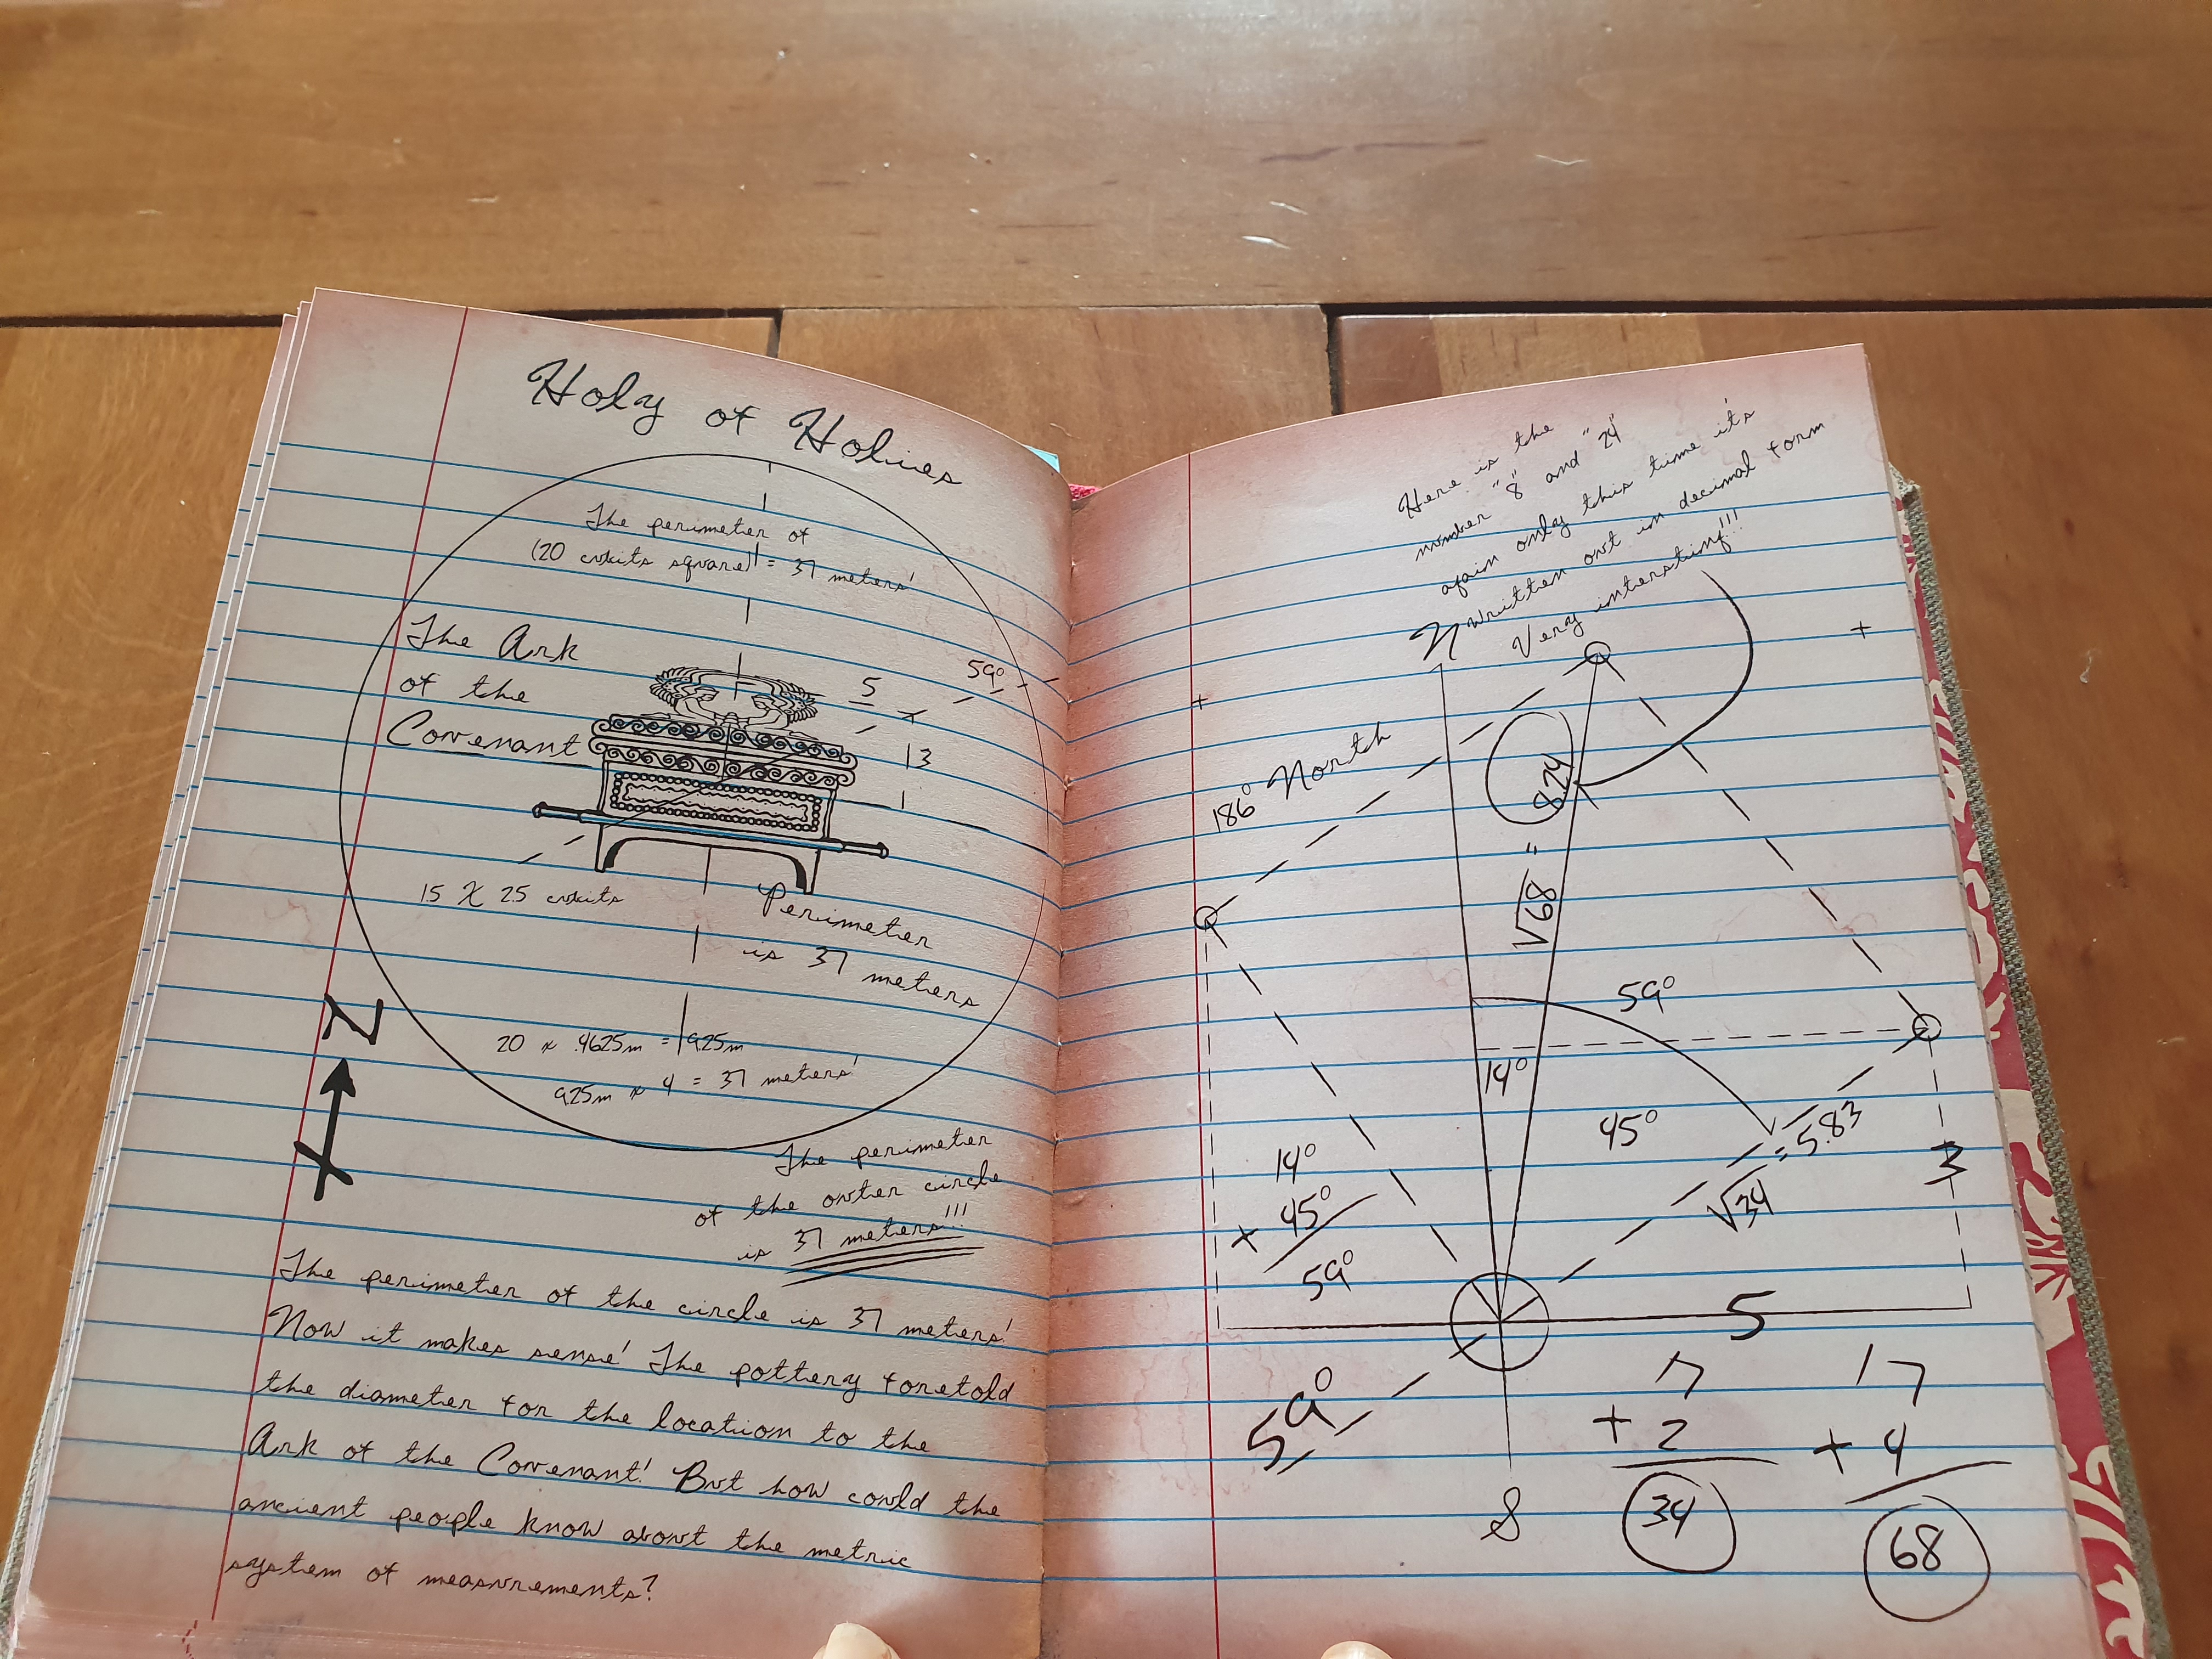 Holy of Holies
The perimeter of
(20 cubits square) = 37 meters!
The Ark
of the
Covenant
5
59°
13
15 X 25 cubits
Perimeter
is 37
meters
N
20 x .4625m = 925m
925m x 4 = 37 meters!
The perimeter
of the outer circle
is 37 meters!!!
The perimeter of the circle is 37 meters!
Now it makes sense! The pottery foretold
the diameter for the location to the
Ark of the Covenant! But how could the
ancient people know about the metric
system of measurements?
Here is the
number "8" and "24"
again only this time it's
written out in decimal form
Very interesting!!!
N
186° North
√68 = 824
59°
14°
45°
√34 = 5.83
3
14°
+ 45°
59°
5
59°
S
17
+ 2
34
17
+ 4
68